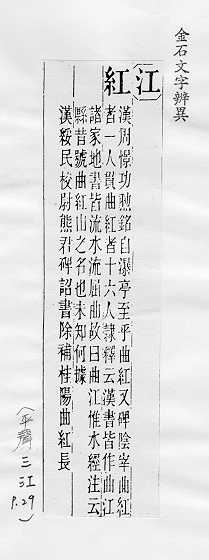 金石文字辨異
江
紅
漢周憬功勲銘自瀑亭至乎曲紅又碑陰宰曲紅
者一人貫曲紅者十六人隷釋云漢書皆作曲江
諸家地書皆流水流屈曲故曰曲江惟水經注云
縣昔號曲紅山之名也未知何據
漢綏民校尉熊君碑詔書除補桂陽曲紅長
(平聲 三江 P.29)